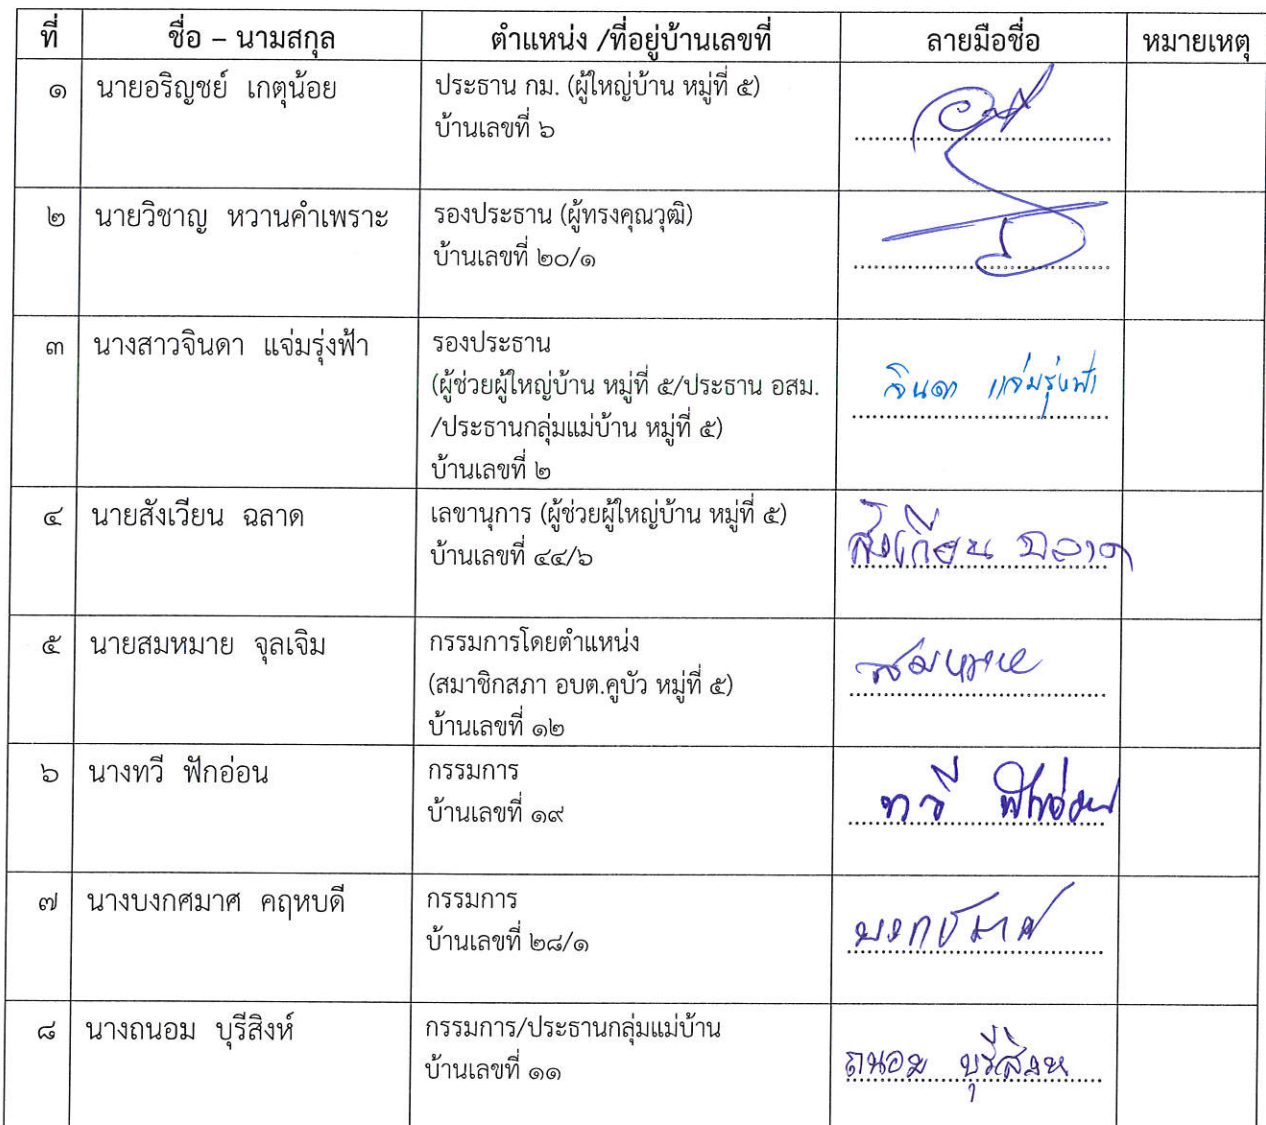 ที่ ชื่อ – นามสกุล ตำแหน่ง /ที่อยู่บ้านเลขที่ ลายมือชื่อ หมายเหตุ
๑ นายอริญชย์ เกตุน้อย ประธาน กม. (ผู้ใหญ่บ้าน หมู่ที่ ๕)
บ้านเลขที่ ๖
๒ นายวิชาญ หวานคำเพราะ รองประธาน (ผู้ทรงคุณวุฒิ)
บ้านเลขที่ ๒๐/๑
๓ นางสาวจินดา แจ่มรุ่งฟ้า รองประธาน
(ผู้ช่วยผู้ใหญ่บ้าน หมู่ที่ ๕/ประธาน อสม. จินดา แจ่มรุ่งฟ้า
/ประธานกลุ่มแม่บ้าน หมู่ที่ ๕)
บ้านเลขที่ ๒
๔ นายสังเวียน ฉลาด เลขานุการ (ผู้ช่วยผู้ใหญ่บ้าน หมู่ที่ ๕)
บ้านเลขที่ ๔๔/๖ สังเวียน ฉลาด
๕ นายสมหมาย จุลเจิม กรรมการโดยตำแหน่ง
(สมาชิกสภา อบต.คูบัว หมู่ที่ ๕) สมหมาย
บ้านเลขที่ ๑๒
๖ นางทวี ฟักอ่อน กรรมการ
บ้านเลขที่ ๑๙ ทวี ฟักอ่อน
๗ นางบงกศมาศ คฤหบดี กรรมการ
บ้านเลขที่ ๒๘/๑ บงกชมาศ
๘ นางถนอม บุรีสิงห์ กรรมการ/ประธานกลุ่มแม่บ้าน
บ้านเลขที่ ๑๑ ถนอม บุรีสิงห